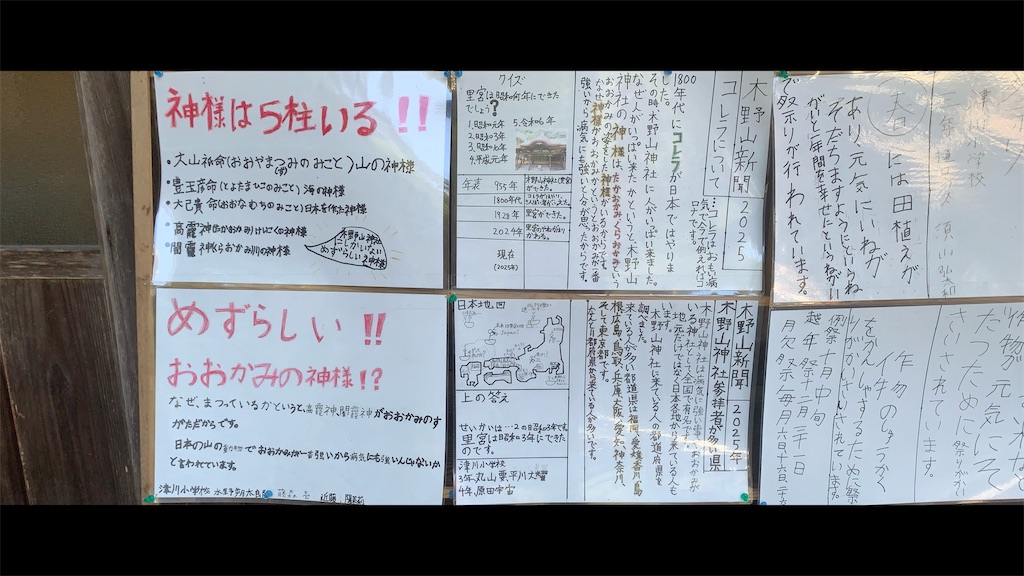 神様は5柱いる!!
・大山祢命(おおやまつみのみこと)山の神様
・豊玉彦命(とよたまひこのみこと)海の神様
・大己貴命(おおなむちのみこと)日本を作た神様
木野山神社
にしかいない
めずらしい
めずらしい!!
おおかみの神様!?
なぜ、まつっているかというと、高龗神、闇龗神がおおかみのす
がただからです。
日本の山の動物でおおかみが一番強いから病気にも強いんじゃないか
と言われています。
津川小学校
クイズ
里宮は昭和何年にできた
でしょう?
1.昭和元年 5.令和6年
2.昭和3年
3.昭和16年
4.平成元年
年表
955年
1800年代
1928年
里宮ができた。
2024年
現在
(2025年)
木野山新聞 2025
コレラについて
…コレラはおもい病
気で今で例えればコ
ロナです。
1800年代にコレラが日本ではやりま
した。
その時、木野山神社に人がいっぱい来ました。
なぜ人がいっぱい来たかというと木野山
神社の神様は、たかおかみ、くらおかみという
おおかみの姿をした神様がいるからです。
なぜ神様がおおかみかというとおおかみが一番
強いから病気にも強いと人が思ったからです。
日本地図
上の答え
せいかいは…2の昭和3年です。
里宮は昭和3年にできた
のです。
津川小学校
3年、丸山 要、平川大耀
4年、原田宇宙
木野山新聞 2025年
木野山神社参拝者が多い県
木野山神社は病気に強い事やおおかみが
いる神社として全国で有名です。
地元だけではなく日本各地から来ている人も
います。
木野山神社に来ている人の都道府県を
調べました。
来ている人が多い都道県は福岡、愛媛、香川、島
根、広島、鳥取、兵庫、大阪、愛知、神奈川、
そして東京都です。
なんと11都府県から来ている人が多いです。
津川小学校
春には田植えが
あり、元気にいねが
そだちますようにというねが
いと一年間を幸せにというねがい
で祭りが行われています。
たつために祭りがかい
さいされています。
作物のしゅうかく
例祭 十月中旬
越年祭 十二月三十一日